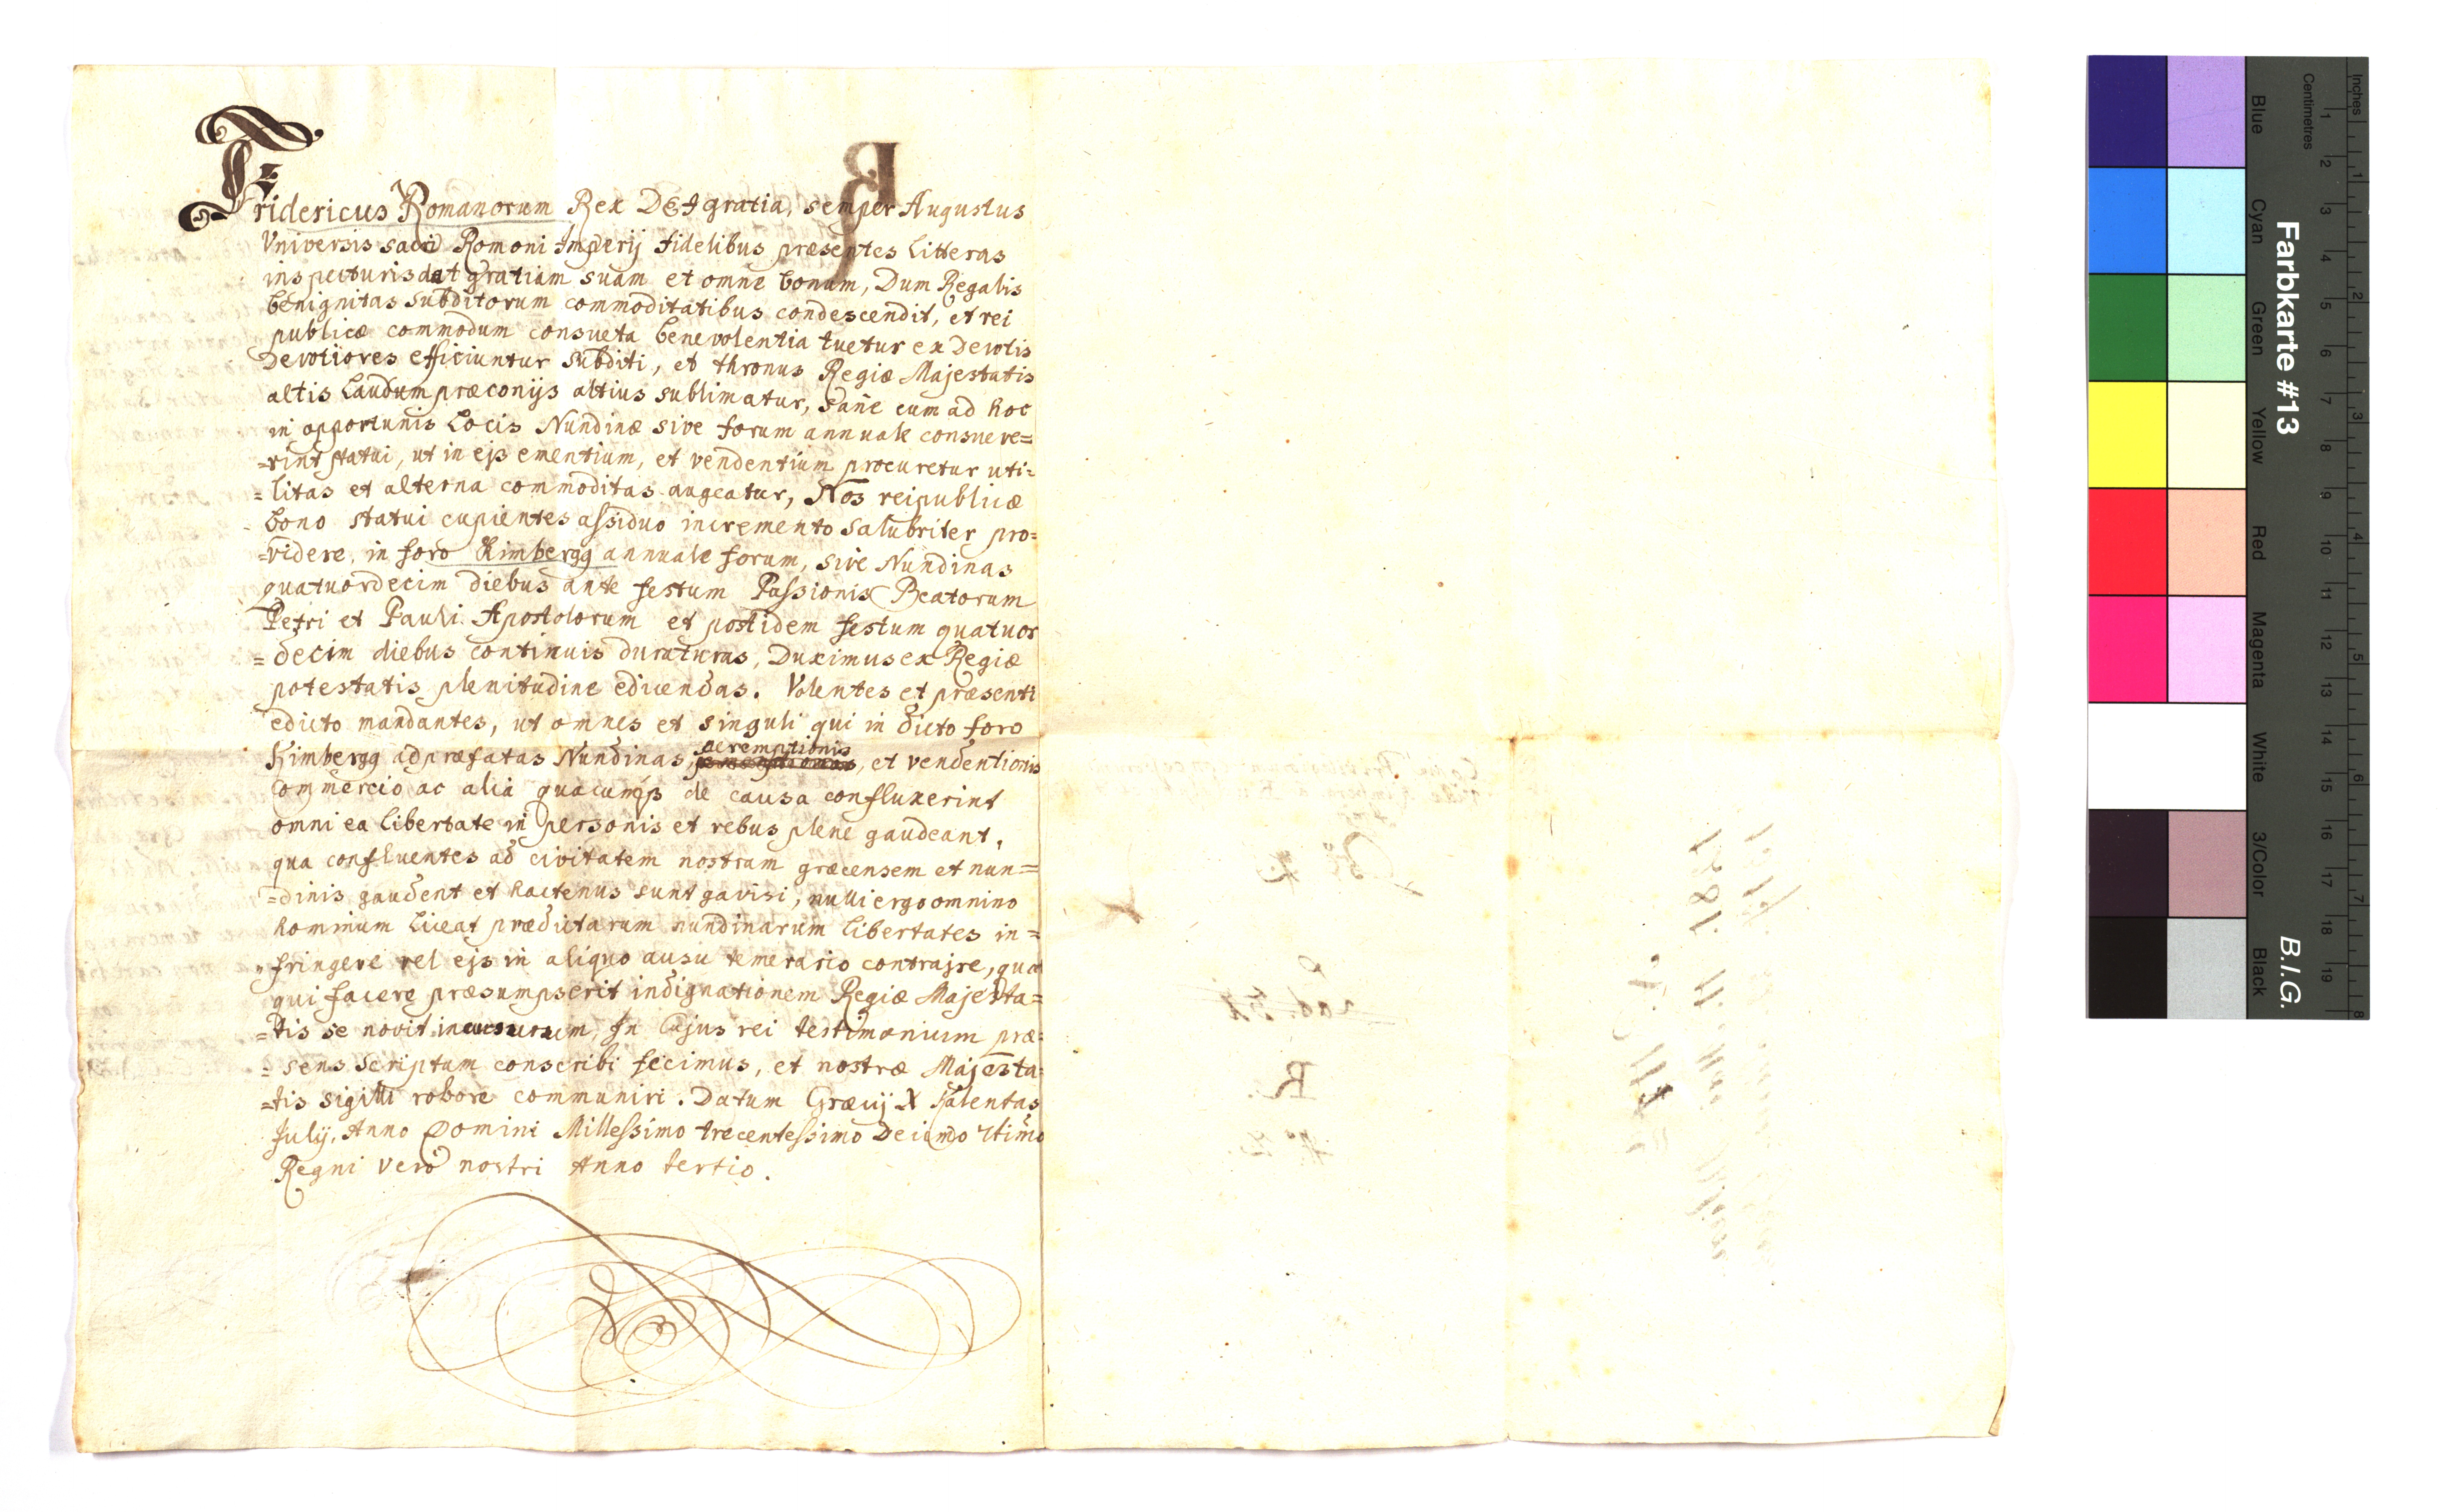 Fridericus Romanorum Rex DEI gratia, semper Augustus
Vniversis sacri Romoni Imperij fidelibus præsentes litteras
inspecturis dat gratiam suam et omne bonum, Dum Regalis
benignitas subditorum commoditatibus condescendit, et rei
publicæ commodum consueta benevolentia tuetur ex Devotis
Devotiores efficiuntur subditi, et thronus Regiæ Majestatis
altis Laudum præconijs altius sublimatur, sane cum ad hoc
in opportunis Locis Nundinæ sive forum annuale consueve=
=rint statui, ut in ejs ementium, et vendentium procuretur uti=
=litas et alterna commoditas augeatur, Nos reipublicæ
bono statui cupientes assiduo incremento salubriter pro=
=videre, in foro Kimbergg annuale forum, sive Nundinas
quatuordecim diebus ante festum Passionis Beatorum
Petri et Pauli Apostolorum et post idem festum quatuor
=decim diebus continuis duraturas, Duximus ex Regiæ
potestatis plenitudine edicendas. Volentes et præsenti
edicto mandantes, ut omnes et singuli qui in dicto foro
Kimbergg ad præfatas Nundinas, ac emptionis, et vendentionis
commercio ac alia quacumq de causa confluxerint
omni ea libertate in personis et rebus plene gaudeant,
qua confluentes ad civitatem nostram græcensem et nun=
=dinis gaudent et hactenus sunt gavisi, nulli ergo omnino
hominum liceat prædictarum nundinarum libertates in=
=fringere vel ejs in aliquo ausu temerario contrajre, quod
qui facere præsumpserit indignationem Regiæ Majesta=
=tis se novit incursurum, In Cujus rei testimonium præ=
=sens scriptum conscribi fecimus, et nostræ Majesta=
=tis sigilli robore communiri. Datum Græcij X Kalentas
July, Anno Domini Millessimo trecentessimo
Regni vero nostri Anno tertio.
Farbkarte #13
B.I.G.
Inches
1 2 3 4 5 6 7 8
Centimetres
1 2 3 4 5 6 7 8 9 10 11 12 13 14 15 16 17 18 19
Blue
Cyan
Green
Yellow
Red
Magenta
White
3/Color
Black